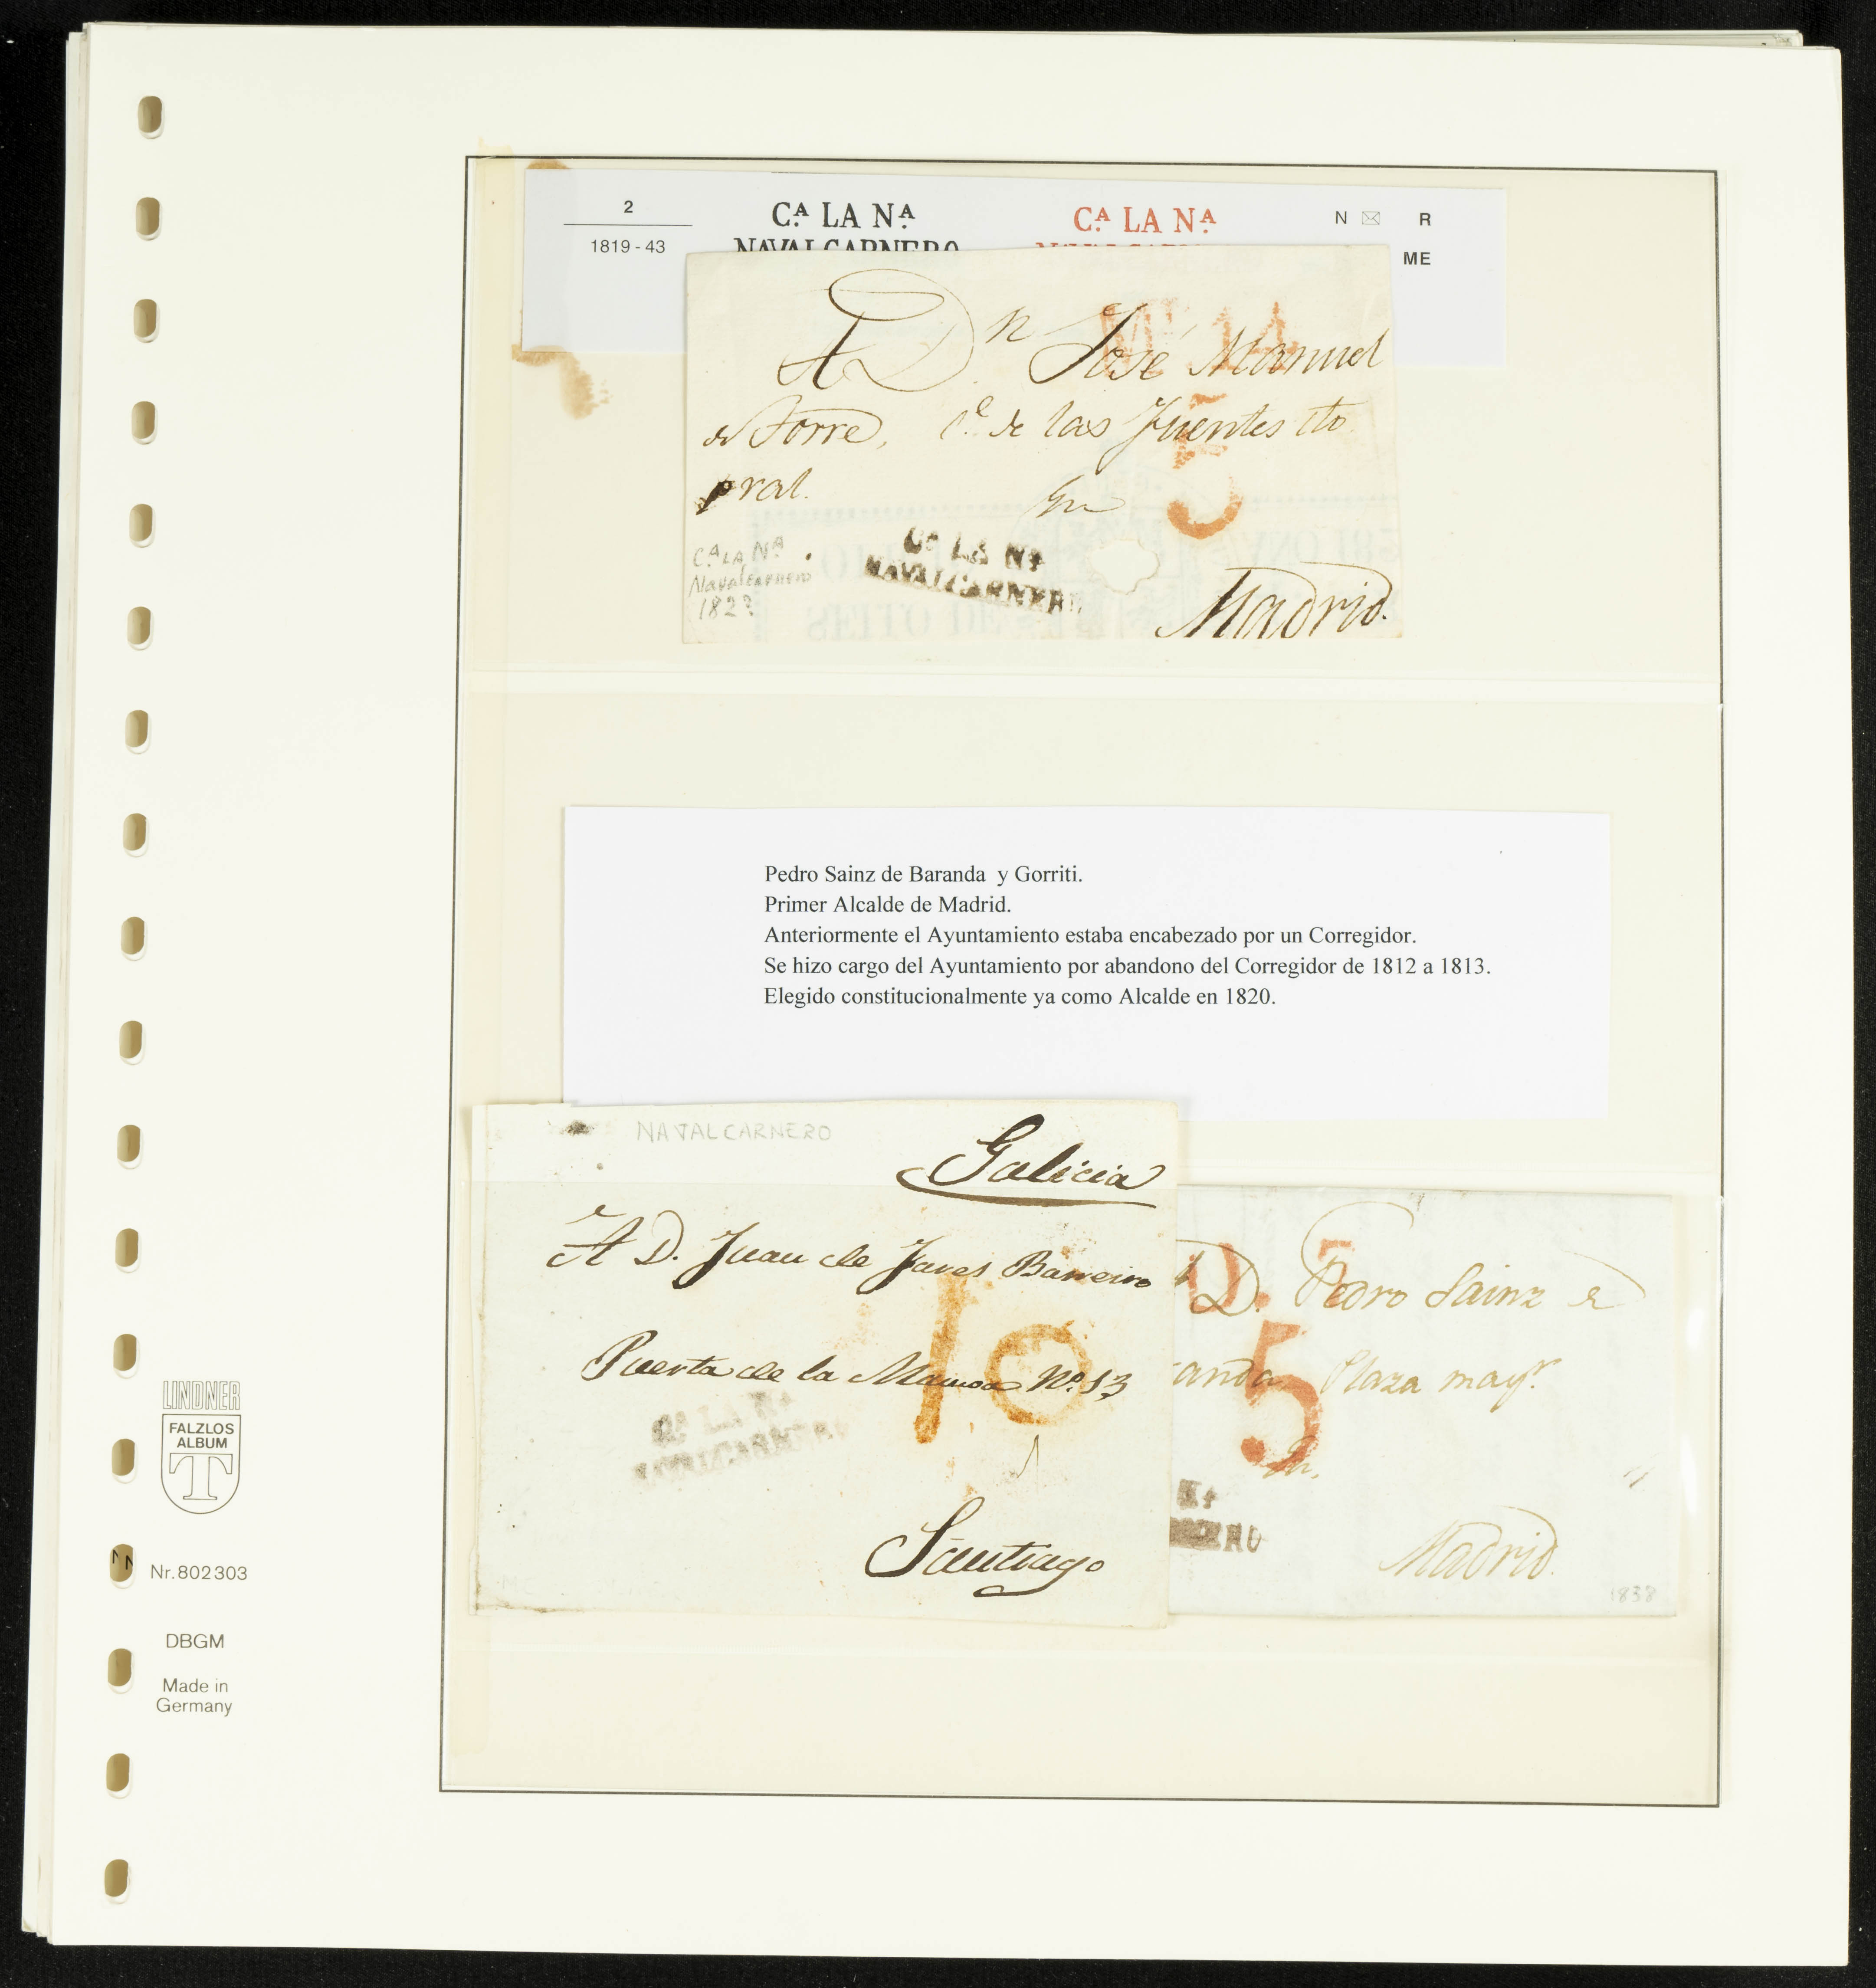 2
1819 - 43
Cᴬ. LA Nᴬ.
NAVALCARNERO
Cᴬ. LA Nᴬ.
N R
ME
A Dⁿ. José Manuel
de Torre, Cᵉ. de las Fuentes
pral.
En
Madrid.
14
5
Cᵃ LA Nᵃ
NAVALCARNERO
Cᴬ LA Nᴬ
Navalcarnero
182?
Pedro Sainz de Baranda y Gorriti.
Primer Alcalde de Madrid.
Anteriormente el Ayuntamiento estaba encabezado por un Corregidor.
Se hizo cargo del Ayuntamiento por abandono del Corregidor de 1812 a 1813.
Elegido constitucionalmente ya como Alcalde en 1820.
NAVALCARNERO
Galicia
A D. Juan de Barreiro
Puerta de la Nº. 13
10
Cᵃ LA Nᵃ
NAVALCARNERO
Santiago
D. Pedro Sainz de
anda Plaza mayʳ.
5
5
Nᵃ
NERO
Madrid.
1838
LINDNER
FALZLOS
ALBUM
T
Nr. 802 303
DBGM
Made in
Germany